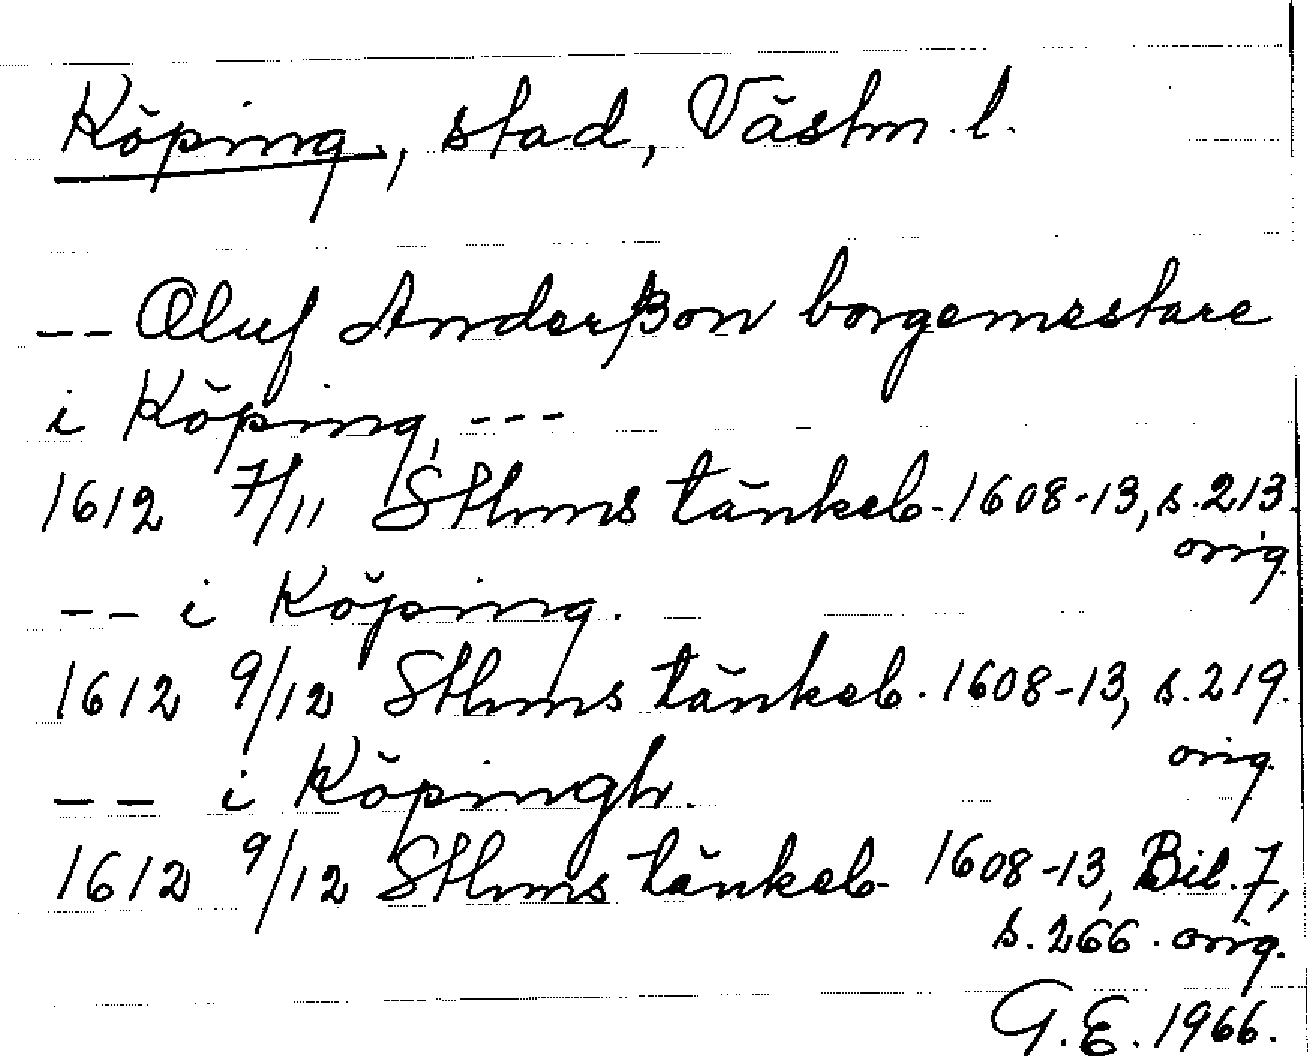 Köping, stad, Västm. l.
-- Oluf Anderßon borgemestare
i Köping, ---
1612 7/11 Sthms tänkeb. 1608-13, s. 213.
orig.
-- i Köping.
1612 9/12 Sthms tänkeb. 1608-13, s. 219.
orig.
-- i Köpingh.
1612 9/12 Sthms tänkeb 1608-13, Bil. 7,
s. 266. orig.
G. E. 1966.